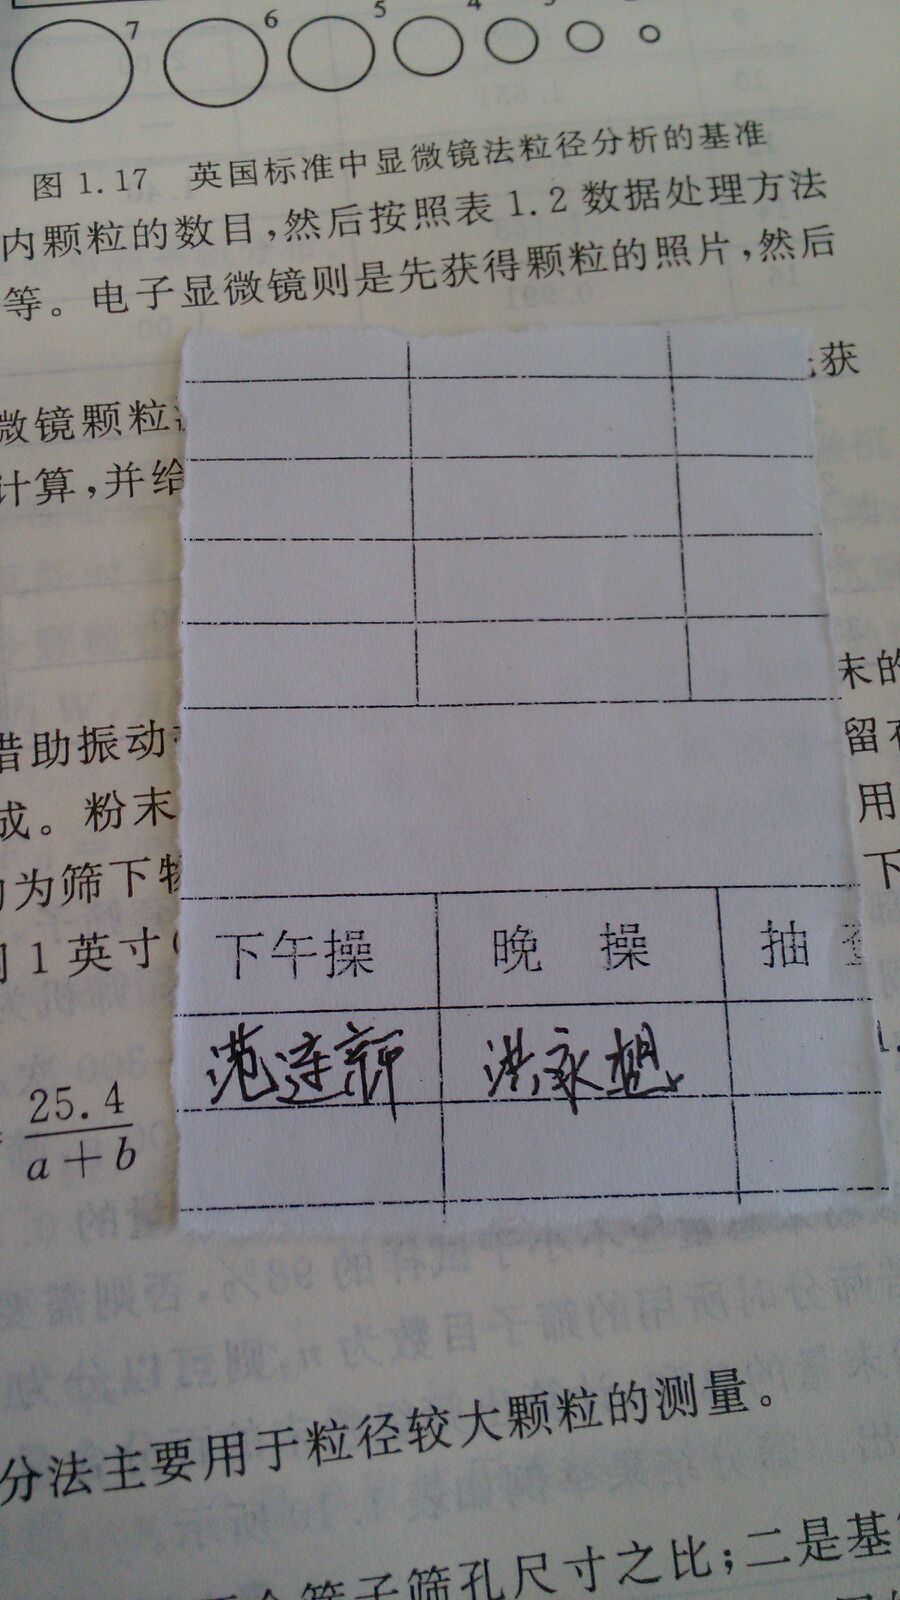 7 6 5 4
图 1.17 英国标准中显微镜法粒径分析的基准
内颗粒的数目,然后按照表 1.2 数据处理方法
等。电子显微镜则是先获得颗粒的照片,然后
获
微镜颗粒
计算,并给
末的
借助振动
留在
成。粉末
用
为筛下物
下
1 英寸(
下午操 晚 操 抽 查
洪永
25.4
a + b
分法主要用于粒径较大颗粒的测量。
筛子筛孔尺寸之比;二是基